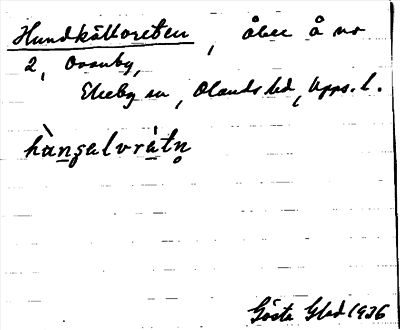 Hundkälloreten, åker å nr
2, Ovanby,
Ekeby sn, Olands hd, Upps. l.
hùnsalvrátn
Gösta Gled 1936